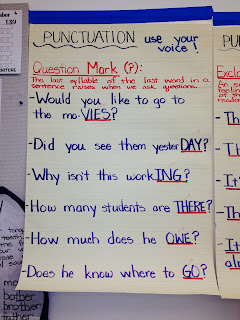 PUNCTUATION use your
voice!
Question Mark (?):
The last syllable of the last word in a
sentence raises when we ask questions.
-Would you like to go to
the mo-VIES?
-Did you see them yesterDAY?
-Why isn't this workING?
-How many students are THERE?
-How much does he OWE?
-Does he know where to GO?
139
PU
Excla
-Th
-It
-Th
-It
mo
bother
brother
father